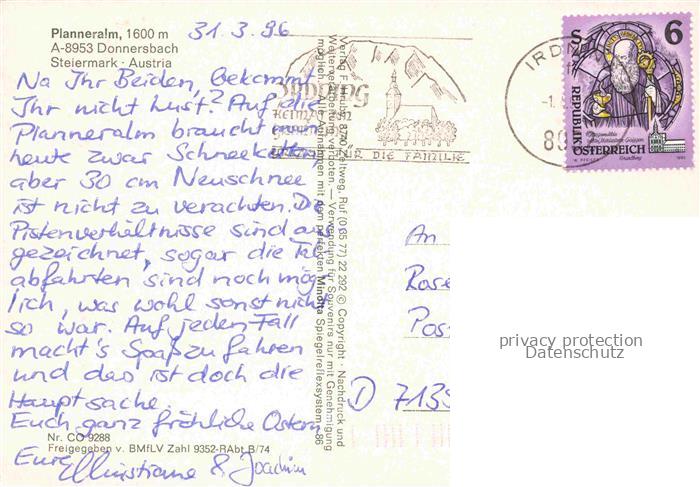 Planneralm, 1600 m
A-8953 Donnersbach
Steiermark · Austria
31.3.96
Na Ihr Beiden, bekommt
Ihr nicht Lust? Auf die
Planneralm braucht man
heute zwar Schneeketten,
aber 30 cm Neuschnee
ist nicht zu verachten. Die
Pistenverhältnisse sind aus
gezeichnet, sogar die Tal
abfahrten sind noch mög
lich, was wohl sonst nicht
so war. Auf jeden Fall
macht's Spaß zu fahren
und das ist doch die
Hauptsache.
Euch ganz fröhliche Ostern
Eure Christiane & Joachim
Nr. CO 9288
Freigegeben v. BMfLV Zahl 9352-RAbt.B/74
Ruf (0 35 77) 22 292 © Copyright · Nachdruck und
Verwendung für Souvenirs nur mit Genehmigung
Aufnahmen mit dem perfekten Minolta Spiegelreflexsystem. 86
FÜR DIE FAMILIE
IRDN
S 6
REPUBLIK
ÖSTERREICH
An
Rose
Pos
D 7139
privacy protection
Datenschutz